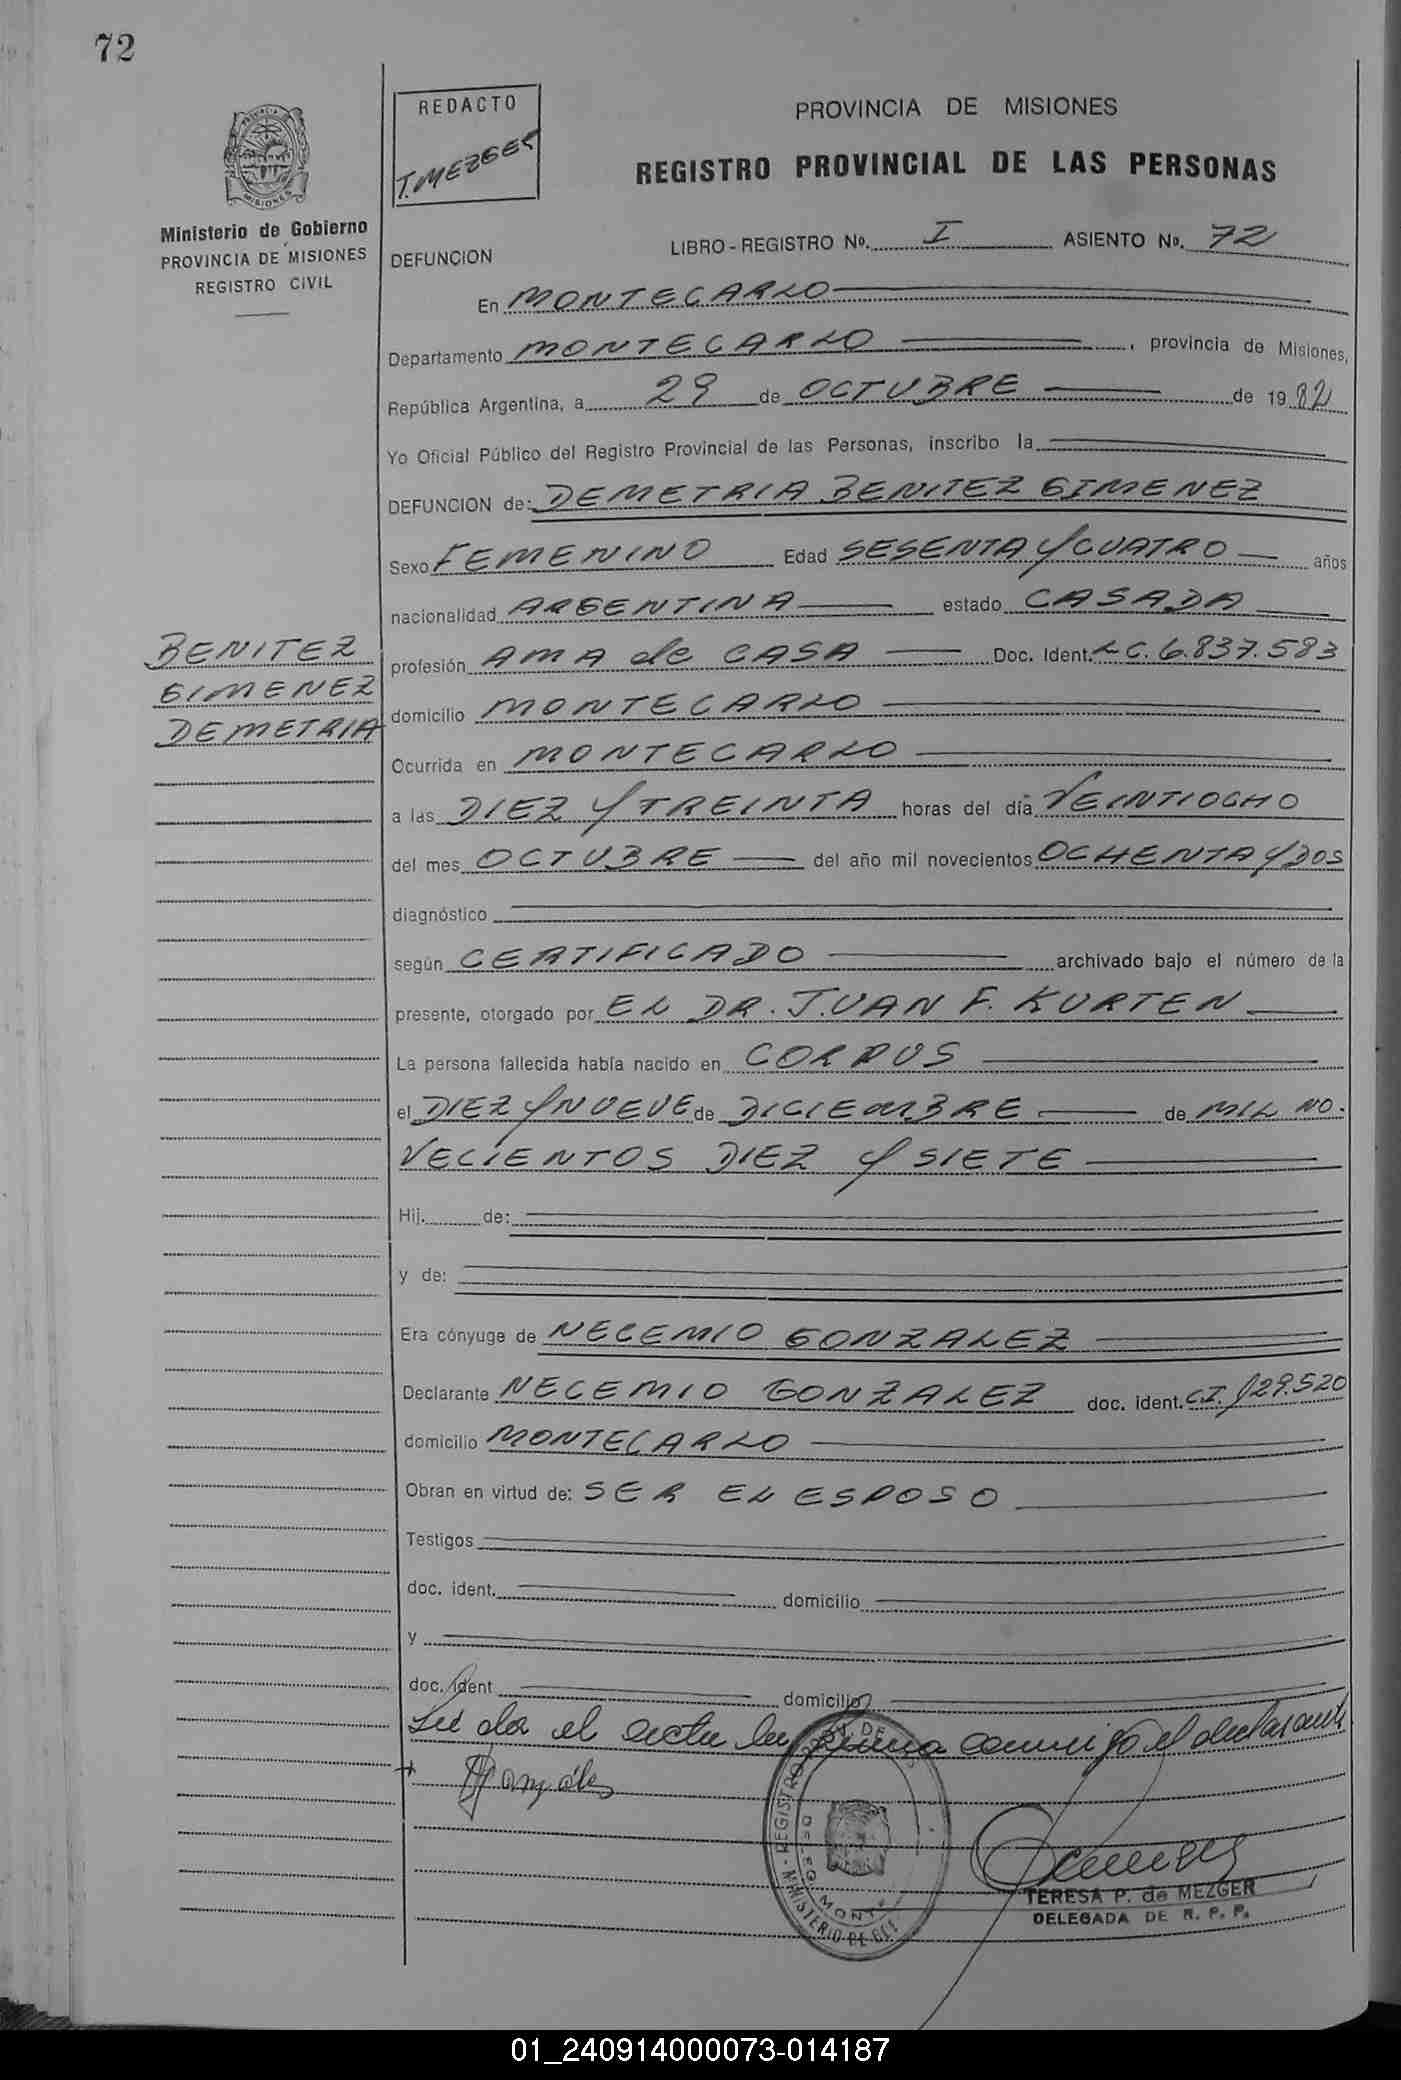 72
REDACTO
T. MEZGER
PROVINCIA DE MISIONES
REGISTRO PROVINCIAL DE LAS PERSONAS
MISIONES
Ministerio de Gobierno
PROVINCIA DE MISIONES
REGISTRO CIVIL
DEFUNCION
LIBRO - REGISTRO Nº. I ASIENTO Nº. 72
En MONTECARLO
Departamento MONTECARLO, provincia de Misiones,
República Argentina, a 29 de OCTUBRE de 1982
Yo Oficial Público del Registro Provincial de las Personas, inscribo la
DEFUNCION de: DEMETRIA BENITEZ GIMENEZ
Sexo FEMENINO Edad SESENTA Y CUATRO años
nacionalidad ARGENTINA estado CASADA
BENITEZ
GIMENEZ
DEMETRIA
profesión AMA de CASA Doc. Ident. LC. 6.837.583
domicilio MONTECARLO
Ocurrida en MONTECARLO
a las DIEZ Y TREINTA horas del día VEINTIOCHO
del mes OCTUBRE del año mil novecientos OCHENTA Y DOS
diagnóstico
según CERTIFICADO archivado bajo el número de la
presente, otorgado por EL DR. JUAN F. KURTEN
La persona fallecida había nacido en CORPUS
el DIEZ Y NUEVE de DICIEMBRE de MIL NO.
VECIENTOS DIEZ Y SIETE
Hij. de:
y de:
Era cónyuge de NECEMIO GONZALEZ
Declarante NECEMIO GONZALEZ doc. ident. C.I. 129.520
domicilio MONTECARLO
Obran en virtud de: SER EL ESPOSO
Testigos
doc. ident. domicilio
y
doc. ident domicilio
el acta la firma conmigo el declarante
González
TERESA P. de MEZGER
DELEGADA DE R. P. P.
01_240914000073-014187